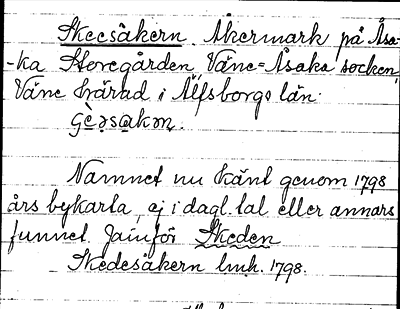 Skeesåkern. Åkermark på Åsa-
-ka Storegården Väne-Åsaka socken,
Väne härad i Älfsborgs län.
Namnet nu känt genom 1798
års bykarta, ej i dagl. tal eller annars
funnet. Jämför Skeden
Skedesåkern lmh. 1798.